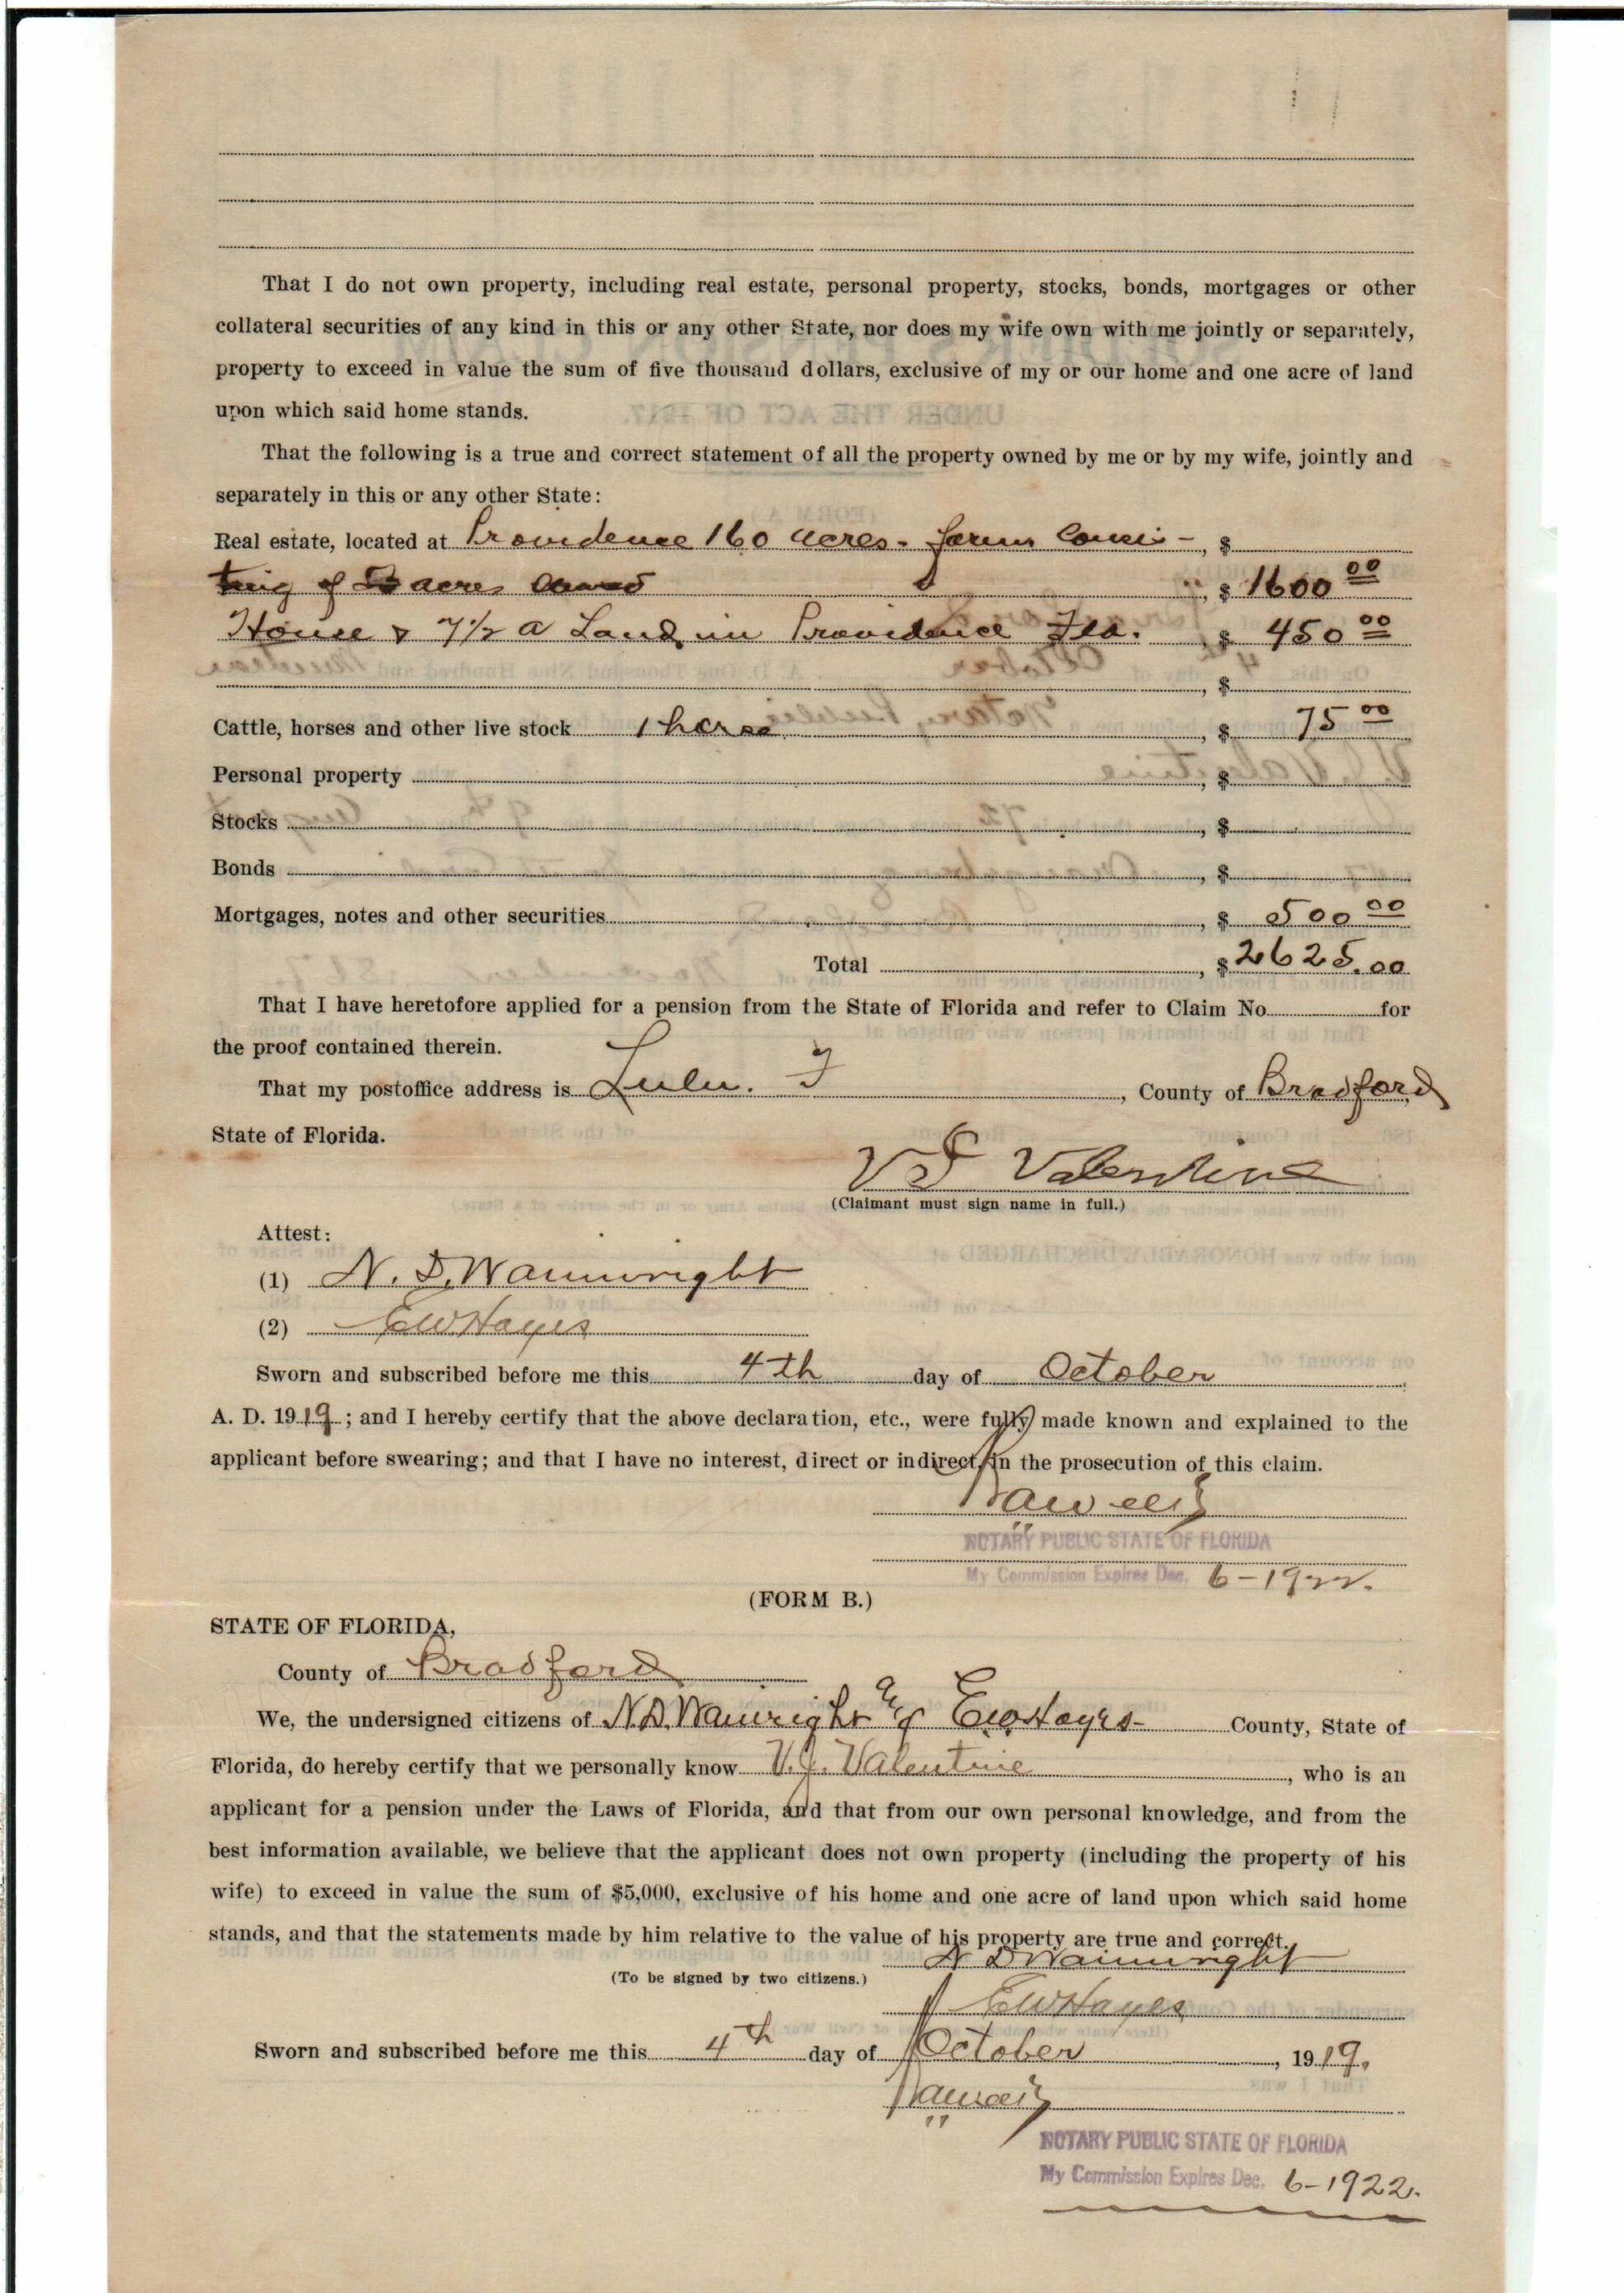 That I do not own property, including real estate, personal property, stocks, bonds, mortgages or other
collateral securities of any kind in this or any other State, nor does my wife own with me jointly or separately,
property to exceed in value the sum of five thousand dollars, exclusive of my or our home and one acre of land
upon which said home stands.
That the following is a true and correct statement of all the property owned by me or by my wife, jointly and
separately in this or any other State:
Real estate, located at Providence 160 acres - farm Consis-, $
ting of acres , $ 1600 00
House & 7 1/2 a Land in Providence Fla. , $ 450 00
, $
Cattle, horses and other live stock 1 horse , $ 75 00
Personal property , $
Stocks , $
Bonds , $
Mortgages, notes and other securities , $ 500 00
Total , $ 2625.00
That I have heretofore applied for a pension from the State of Florida and refer to Claim No. for
the proof contained therein.
That my postoffice address is Lulu. F , County of Bradford
State of Florida.
V J Valentine
(Claimant must sign name in full.)
Attest:
(1) N. D. Wainwright
(2) E W Hayes
Sworn and subscribed before me this 4th day of October
A. D. 1919; and I hereby certify that the above declaration, etc., were fully made known and explained to the
applicant before swearing; and that I have no interest, direct or indirect, in the prosecution of this claim.
NOTARY PUBLIC STATE OF FLORIDA
My Commission Expires Dec. 6-1922.
(FORM B.)
STATE OF FLORIDA,
County of Bradford
We, the undersigned citizens of N.D. Wainright & E.W. Hayes- County, State of
Florida, do hereby certify that we personally know V.J. Valentine , who is an
applicant for a pension under the Laws of Florida, and that from our own personal knowledge, and from the
best information available, we believe that the applicant does not own property (including the property of his
wife) to exceed in value the sum of $5,000, exclusive of his home and one acre of land upon which said home
stands, and that the statements made by him relative to the value of his property are true and correct.
N D Wainwright
(To be signed by two citizens.)
E W Hayes
Sworn and subscribed before me this 4th day of October , 1919.
NOTARY PUBLIC STATE OF FLORIDA
My Commission Expires Dec. 6-1922.